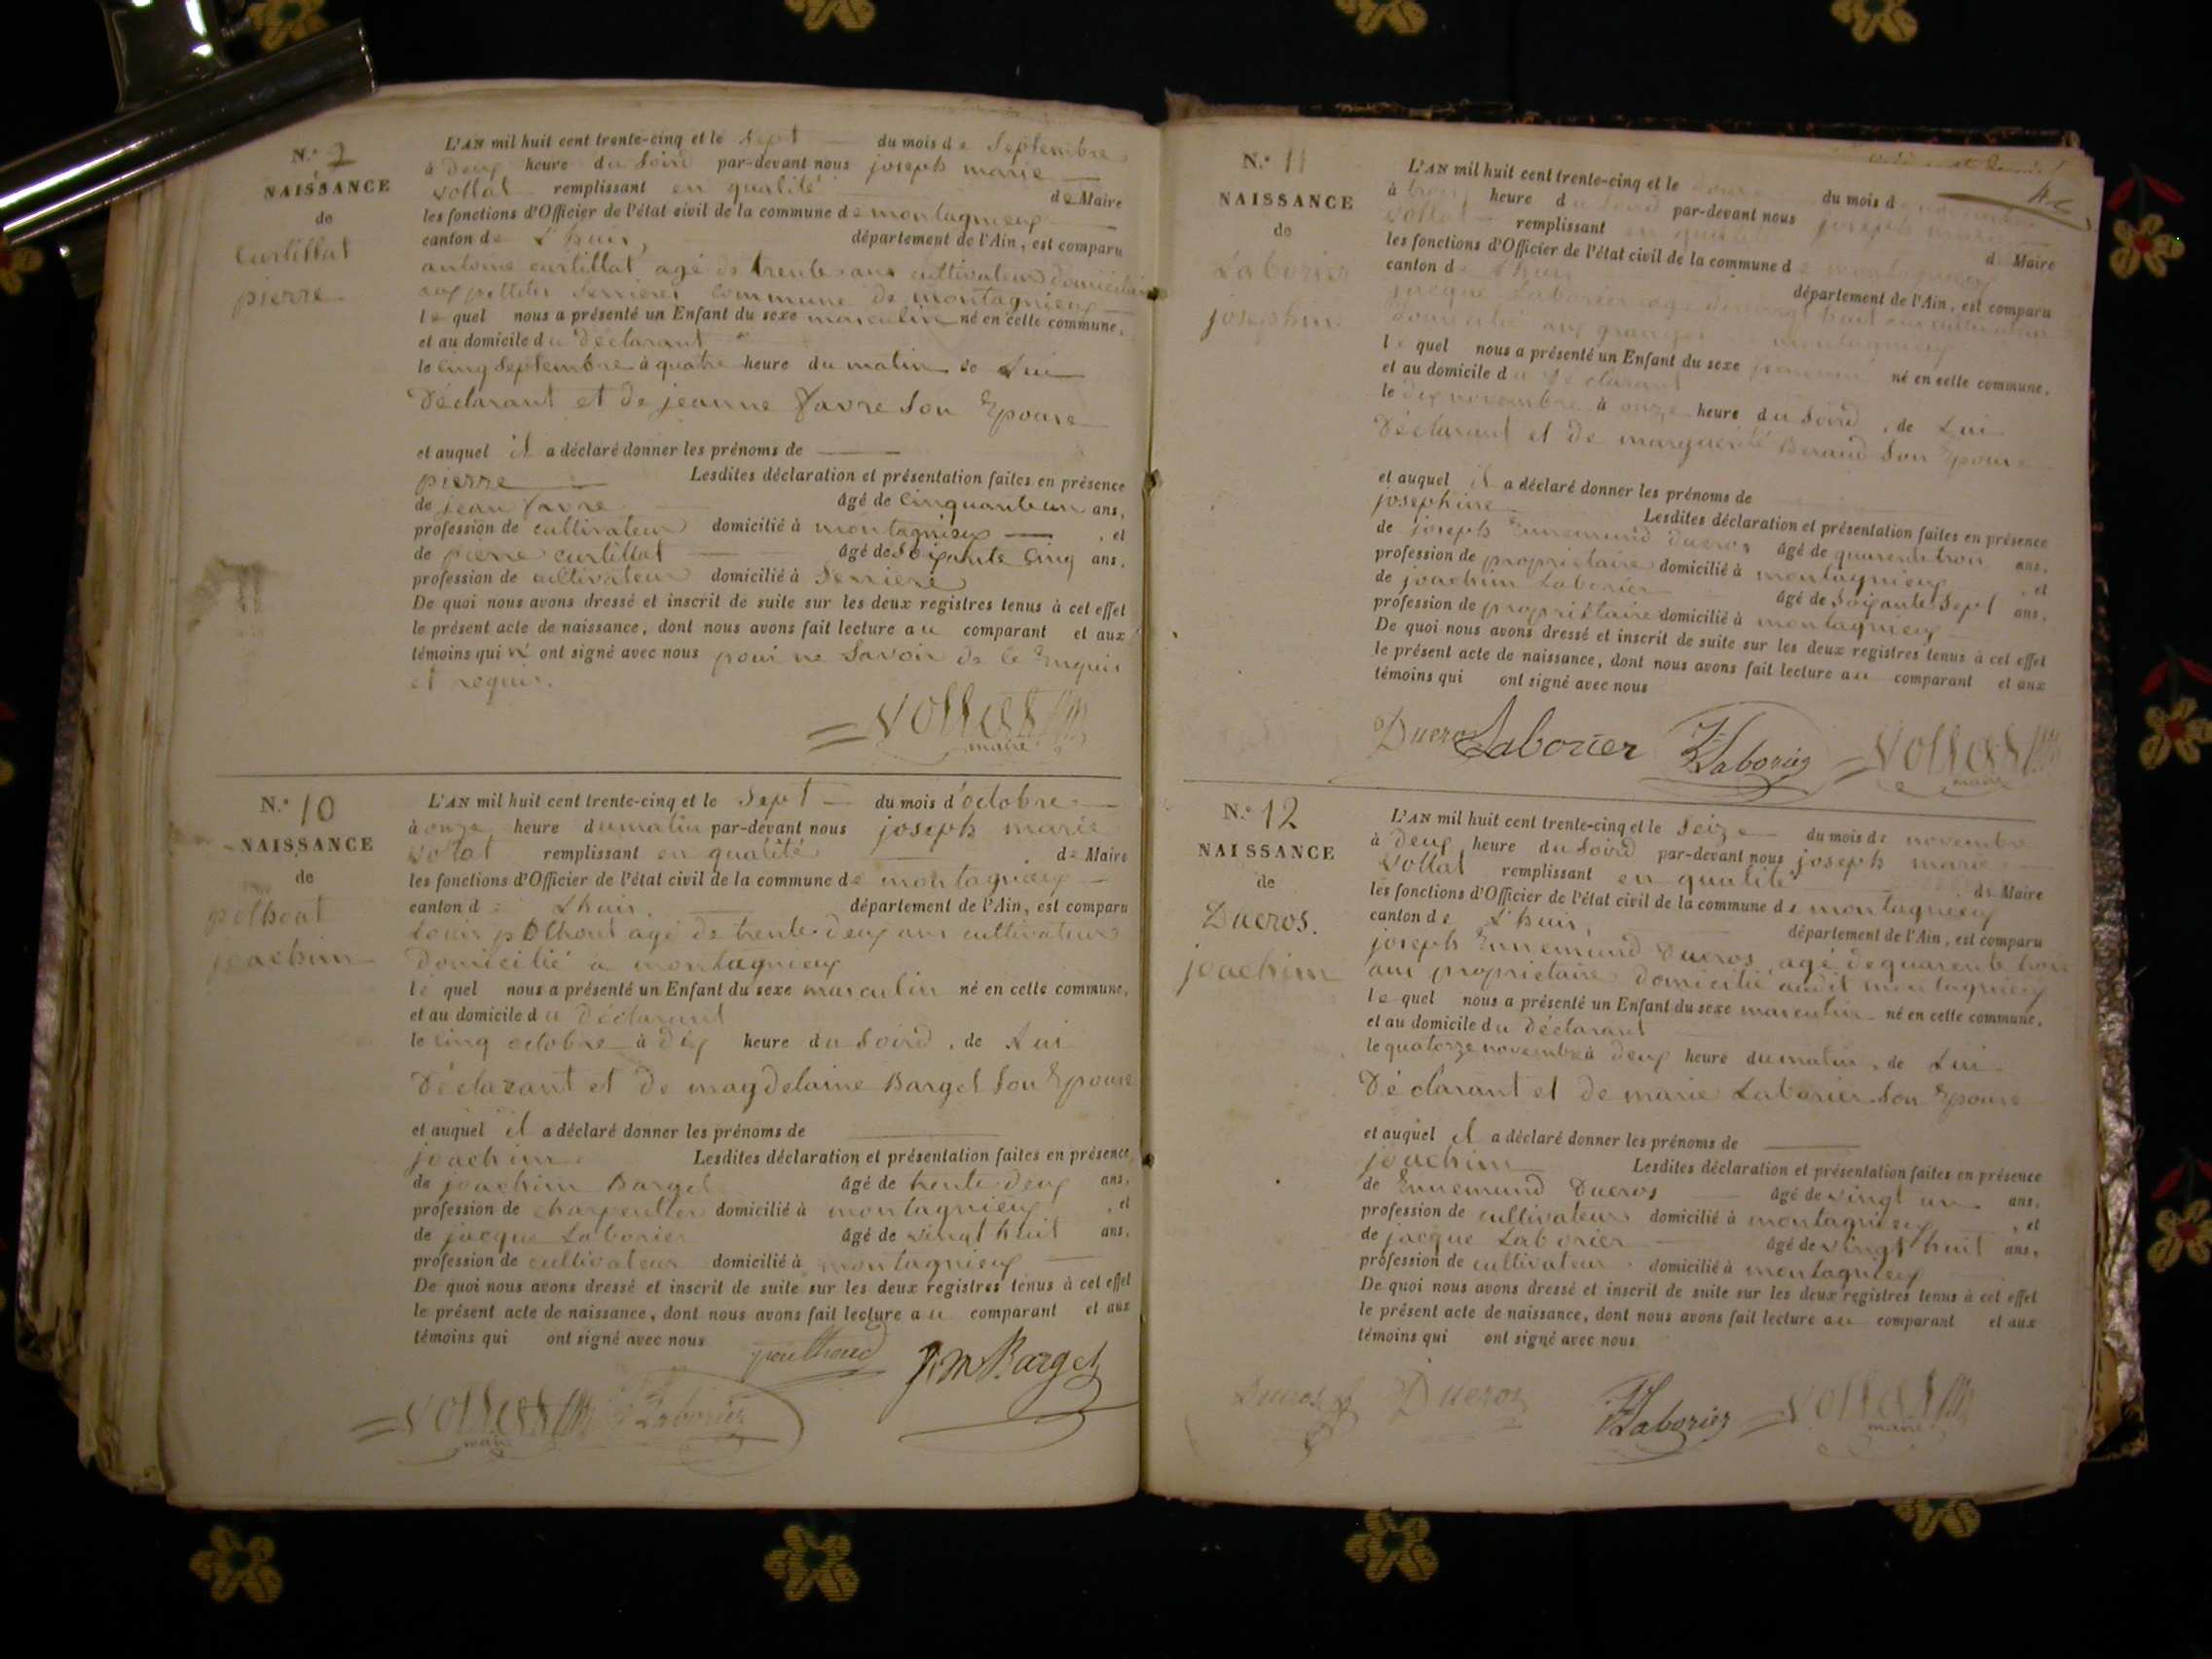 N.° 9
NAISSANCE
de
Curtillat
pierre
L'AN mil huit cent trente-cinq et le Sept du mois de Septembre
à deux heure du Soird par-devant nous joseph marie
Vollat remplissant en qualité de Maire
les fonctions d'Officier de l'état civil de la commune de montagnieux
canton de L'huis, département de l'Ain, est comparu
antoine curtillat agé de trente ans cultivateur domicilié
aux petites Serrieres commune de montagnieux
le quel nous a présenté un Enfant du sexe masculin né en cette commune,
et au domicile du déclarant
le cinq Septembre à quatre heure du matin de Lui
Déclarant et de jeanne favre Son Epouse
et auquel il a déclaré donner les prénoms de
pierre Lesdites déclaration et présentation faites en présence
de jean favre âgé de Cinquante un ans,
profession de cultivateur domicilié à montagnieux , et
de pierre curtillat âgé de Soixante Cinq ans,
profession de cultivateur domicilié à Serriere
De quoi nous avons dressé et inscrit de suite sur les deux registres tenus à cet effet
le présent acte de naissance, dont nous avons fait lecture au comparant et aux
témoins qui n' ont signé avec nous pour ne Savoir de ce Enquis
et requis.
Vollat
maire
N.° 10
NAISSANCE
de
pothout
joachim
L'AN mil huit cent trente-cinq et le Sept du mois d'octobre
à onze heure du matin par-devant nous joseph marie
Vollat remplissant en qualité de Maire
les fonctions d'Officier de l'état civil de la commune de montagnieux
canton de Lhuis, département de l'Ain, est comparu
Louis pothout agé de trente deux ans cultivateur
Domicilié à montagnieux
le quel nous a présenté un Enfant du sexe masculin né en cette commune,
et au domicile du Déclarant
le Cinq octobre à dix heure du Soird , de Lui
Déclarant et de magdelaine Barget Son Epouse
et auquel il a déclaré donner les prénoms de
joachim Lesdites déclaration et présentation faites en présence
de joachim Barget âgé de trente deux ans,
profession de charpentier domicilié à montagnieux , et
de jacque Laborier âgé de vingt huit ans,
profession de cultivateur domicilié à montagnieux
De quoi nous avons dressé et inscrit de suite sur les deux registres tenus à cet effet
le présent acte de naissance, dont nous avons fait lecture au comparant et aux
témoins qui ont signé avec nous
J. M Barget
Vollat Laborier
maire
N.° 11
NAISSANCE
de
Laborier
josephine
L'AN mil huit cent trente-cinq et le douze du mois de novembre
à trois heure du Soird par-devant nous joseph marie
Vollat remplissant en qualité de Maire
les fonctions d'Officier de l'état civil de la commune de montagnieux
canton de Lhuis département de l'Ain, est comparu
jacque Laborier agé de vingt huit ans cultivateur
domicilié aux granges montagnieux
le quel nous a présenté un Enfant du sexe feminin né en cette commune,
et au domicile du déclarant
le dix novembre à onze heure du Soird , de Lui
Déclarant et de marguerite Beraud Son Epouse
et auquel il a déclaré donner les prénoms de
josephine Lesdites déclaration et présentation faites en présence
de joseph Ennemund Ducros âgé de quarente trois ans,
profession de proprietaire domicilié à montagnieux , et
de joachim Laborier âgé de Soixante Sept ans,
profession de proprietaire domicilié à montagnieux
De quoi nous avons dressé et inscrit de suite sur les deux registres tenus à cet effet
le présent acte de naissance, dont nous avons fait lecture au comparant et aux
témoins qui ont signé avec nous
Ducros Laborier Laborier Vollat
maire
N.° 12
NAISSANCE
de
Ducros.
joachim
L'AN mil huit cent trente-cinq et le Seize du mois de novembre
à Deux heure du Soird par-devant nous joseph marie
Vollat remplissant en qualité de Maire
les fonctions d'Officier de l'état civil de la commune de montagnieux
canton de L'huis, département de l'Ain, est comparu
joseph Ennemund Ducros, agé de quarente trois
ans proprietaire Domicilié audit montagnieux
le quel nous a présenté un Enfant du sexe masculin né en cette commune,
et au domicile du Déclarant
le quatorze novembre à deux heure du matin , de Lui
Déclarant et de marie Laborier Son Epouse
et auquel il a déclaré donner les prénoms de
joachim Lesdites déclaration et présentation faites en présence
de Ennemund Ducros âgé de vingt un ans,
profession de cultivateur domicilié à montagnieux , et
de jacque Laborier âgé de vingt huit ans,
profession de cultivateur domicilié à montagnieux
De quoi nous avons dressé et inscrit de suite sur les deux registres tenus à cet effet
le présent acte de naissance, dont nous avons fait lecture au comparant et aux
témoins qui ont signé avec nous
Ducros Ducros Laborier Vollat
maire